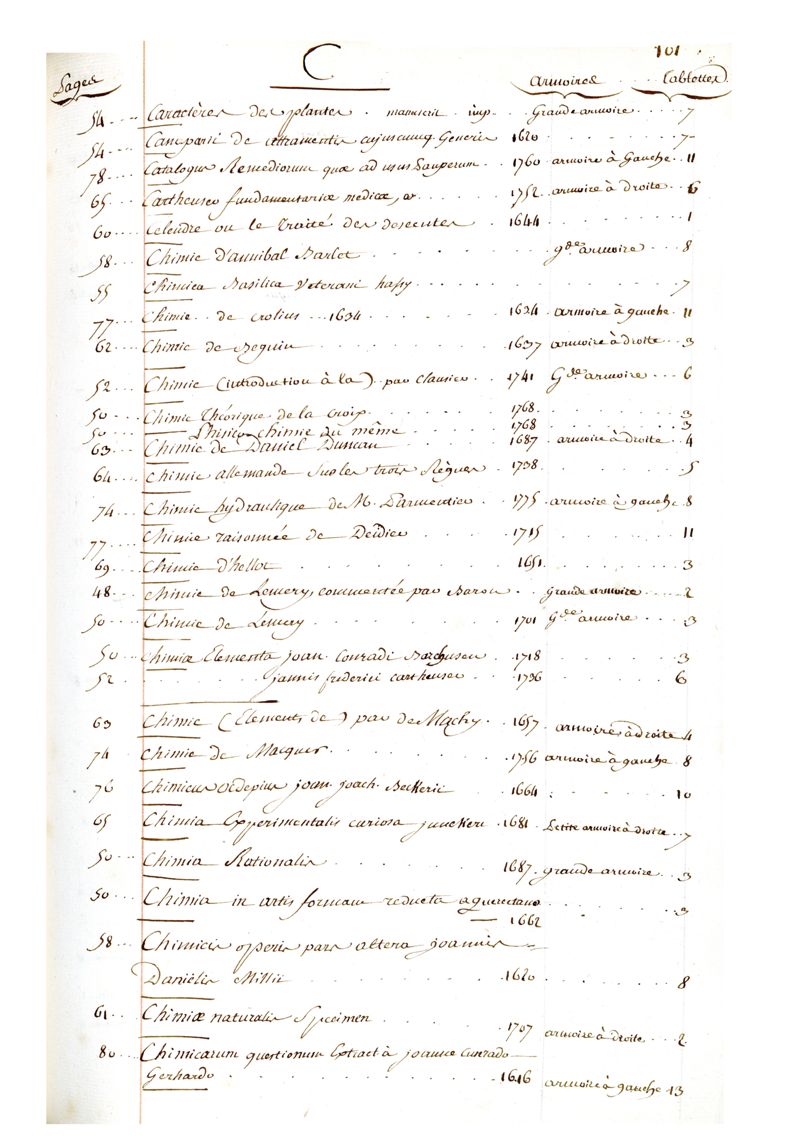 C
101
Pages
armoires . . . . tablettes
54 . . . . Caractères des plantes . manuscrit . imp. . Grande armoire . . . . . 7
54 . . . . Camparii de attramentis cujuscumq Generis 1620 . . . . . . 7
78 . . . . Catalogus Remediorum quæ ad usus Pauperum . . 1760 armoire à Gauche . 11
65 . . . Cartheuser fundamentarica medicæ, &c . . . . . . 1752 armoire à droite . . 6
60 . . . Celendre ou le Traité des dosecutes . . 1644 . . . . . . 1
58 . . . Chimie d'annibal Barlet . . . . . . g.de armoire . . . 8
55 Chimica Basilica Veterani hassy . . . . . . . . . . 7
77 . . . . Chimie . . de Crolius . . . 1634 . . . . . . 1624 armoire à gauche . 11
62 . . . Chimie de Beguin . . . . . . 1637 armoire à droite . . . 3
52 . . . Chimie (introduction à la) par Clausier . . 1741 G.de armoire . . . 6
50 . . . Chimie Théorique de la Croix . . . . . . 1768 . . . . . . 3
50 . . . Phisico-chimie du même . . . . . . 1768 . . . . . . 3
63 . . . Chimie de Daniel Duncan . . . . . . 1687 . armoire à droite . 4
64 . . . chimie allemande sur les trois Règnes . . 1738 . . . . . . 5
74 . . . Chimie hydraulique de M. Parmentier . . 1775 armoire à gauche . 8
77 . . . . Chimie raisonnée de Deidier . . . . 1715 . . . . . . 11
69 . . . Chimie d'hellot . . . . . . 1651 . . . . . . 3
48 . . . chimie de Lemery, commentée par Baron . . Grande armoire . . . . . 2
50 . . . Chimie de Lemery . . . . . . 1701 G.de armoire . . . 3
50 . . . Chimiæ Elementa joan. Conradi Barchusen . . 1718 . . . . . . 3
52 . . . jannis frederici cartheuser . . . 1736 . . . . . . 6
63 Chimie (Elements de) par de Machy . . 1657 . armoire à droite . 4
74 . . . Chimie de Macquer . . . . . . 1756 armoire à gauche . 8
76 Chimicus Oedepius joan. joach. Beckerii 1664 . . . . . . 10
65 . . . Chimia Experimentalis curiosa junckeri . 1681 . Petite armoire à droite . . 7
50 . . . Chimia Rationalis . . . . . . 1687 . grande armoire . . . 3
50 . . . Chimia in artis formam redacta a Quercetano . . . . . . 3
1662
58 . . . Chimicis operis pars altera joannis =
Danielis Millii . . . . . . 1620 . . . . . . 8
61 . . . Chimiæ naturalis Specimen . . . . . . 1707 armoire à droite . . . 2
80 . . . Chimicarum questionum Extract à joanne Conrado
Gerhardo . . . . . . 1616 armoire à gauche 13